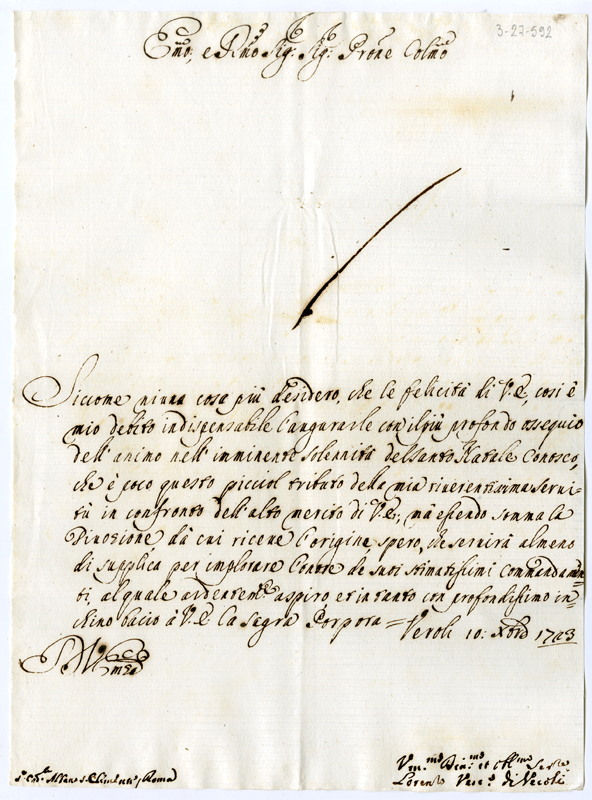 3-27-592
Emo, e Rmo Sig: Sig: Prone Colmo
Siccome niuna cosa più desidero, che le felicità di V.E., così è
mio debito indispensabile l'augurarle con il più profondo ossequio
dell'animo nell'imminente solennità del Santo Natale Conosco,
che è poco questo picciol tributo della mia riverentissima servi-
tù in confronto dell'alto merito di V.E., mà essendo somma la
Divozione, dà cui riceve l'origine, spero, che servirà almeno
di supplica per implorare l'onore de suoi stimatissimi commandamen-
ti, al quale ardentemte aspiro et intanto con profondissimo in-
chino bacio à V.E. la Sagra Porpora = Veroli 10: Xbre 1723
S. Cle Albano S. Clemente / Roma
Vmo Dino et Obmo Serre
Lorenzo Vesco di Veroli